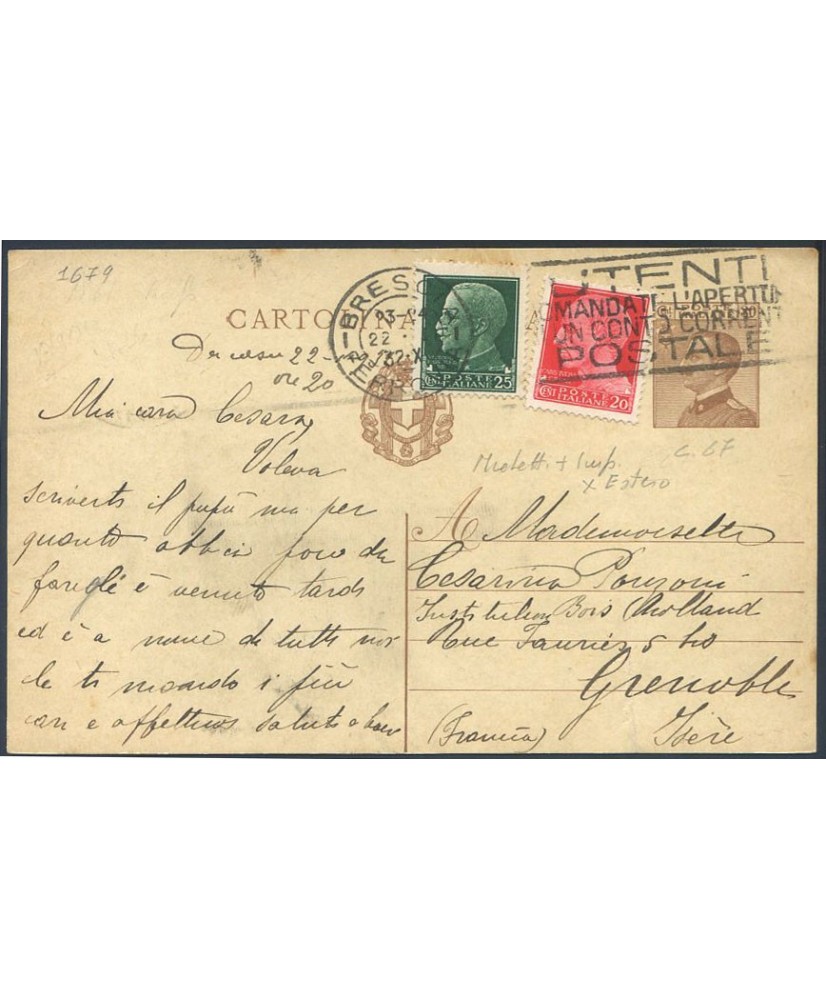 1679
CARTOLINA
BRESCIA
23-24
22
32-X
UTENTI
MANDATE L'APERTU
UN CONTO CORRENT
POSTALE
POSTE
ITALIANE
CENT 25
POSTE
ITALIANE
CENT 20
22
ore 20
Mia cara Cesara,
Voleva
scriverti il papà ma per
quanto abbia poco da
fargli è venuto tardi
ed è a nome di tutti noi
che ti mando i più
cari e affettuosi saluti e baci
c. 67
+ Imp.
x Estero
A Mademoiselle
Cesarina Ponzoni
Institution Bois Rolland
Rue
Grenoble
(Francia)
Isère